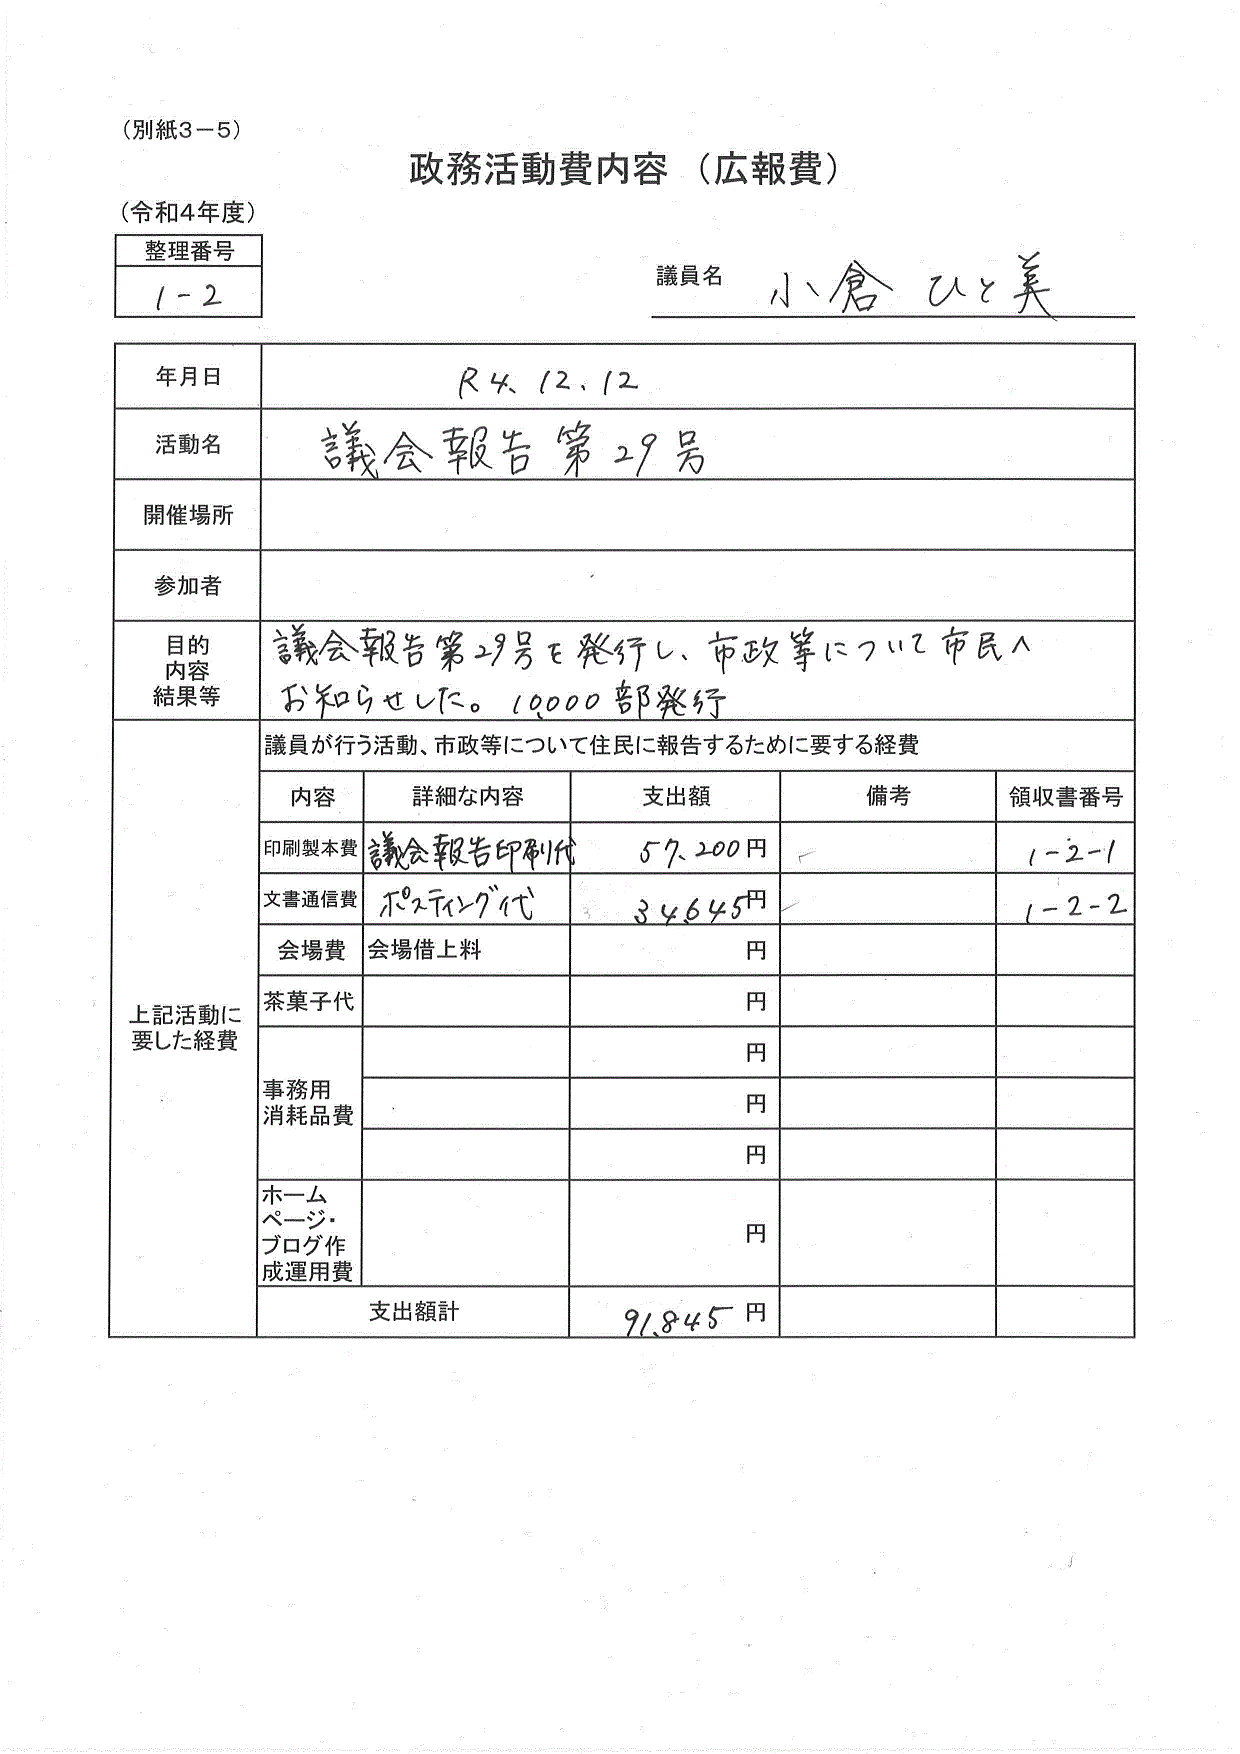 （別紙3－5）
政務活動費内容（広報費）
（令和4年度）
整理番号
1-2
議員名 小倉 ひと美
年月日 R4.12.12
活動名 議会報告第29号
開催場所
参加者
目的
内容
結果等
議会報告第29号を発行し、市政等について市民へ
お知らせした。10,000部発行
上記活動に
要した経費
議員が行う活動、市政等について住民に報告するために要する経費
内容 詳細な内容 支出額 備考 領収書番号
印刷製本費 議会報告印刷代 57,200円 1-2-1
文書通信費 ポスティング代 34,645円 1-2-2
会場費 会場借上料 円
茶菓子代 円
事務用
消耗品費
円
円
円
ホーム
ページ・
ブログ作
成運用費
円
支出額計 91,845円